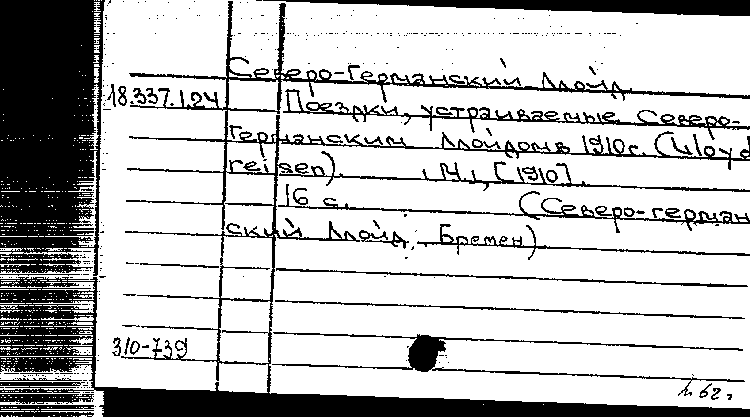 Северо-Германский Ллойд
18.337.1.24 Поездки, устраиваемые Северо-
Германским Ллойдом в 1910 г. (Lloyd
reisen). М., [1910].
16 с. (Северо-герман
ский Ллойд, Бремен)
310-739
62г